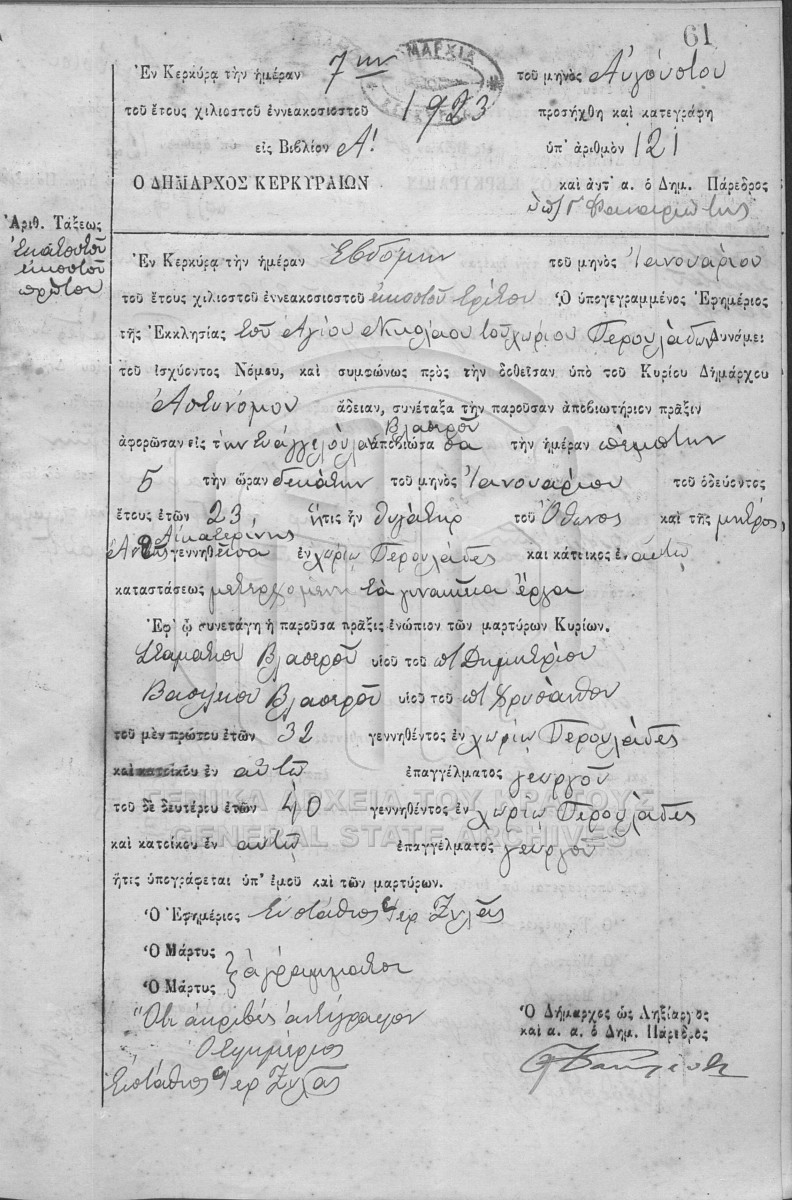 61
ΔΗΜΑΡΧΙΑ
Ἐν Κερκύρᾳ τὴν ἡμέραν 7ην τοῦ μηνὸς Αὐγούστου
τοῦ ἔτους χιλιοστοῦ ἐννεακοσιοστοῦ 1923 προσήχθη καὶ κατεγράφη
εἰς Βιβλίον Α! ὑπ' ἀριθμὸν 121
Ο ΔΗΜΑΡΧΟΣ ΚΕΡΚΥΡΑΙΩΝ καὶ ἀντ' α. ὁ Δημ. Πάρεδρος
Ἀριθ. Τάξεως
ἑκατοστοῦ
εἰκοστοῦ
πρῶτον
Ἐν Κερκύρᾳ τὴν ἡμέραν Ἑβδόμην τοῦ μηνὸς Ἰανουαρίου
τοῦ ἔτους χιλιοστοῦ ἐννεακοσιοστοῦ εἰκοστοῦ τρίτου Ὁ ὑπογεγραμμένος Ἐφημέριος
τῆς Ἐκκλησίας τοῦ Ἁγίου Νικολάου τοῦ χωρίου Περουλάδων Δυνάμει
τοῦ ἰσχύοντος Νόμου, καὶ συμφώνως πρὸς τὴν δοθεῖσαν ὑπὸ τοῦ Κυρίου Δημάρχου
Ἀστυνόμου ἄδειαν, συνέταξα τὴν παροῦσαν ἀποβιωτήριον πρᾶξιν
Βλασεροῦ
ἀφορῶσαν εἰς τὴν Εὐαγγελούλαν ἀποβιώσασα τὴν ἡμέραν πέμπτην
5 τὴν ὥραν δεκάτην τοῦ μηνὸς Ἰανουαρίου τοῦ ὁδεύοντος
ἔτους ἐτῶν 23, ἥτις ἦν θυγάτηρ τοῦ Ὄθωνος καὶ τῆς μητρός,
Αἰκατερίνης
γεννηθεῖσα ἐν χωρίῳ Περουλάδες καὶ κάτοικος ἐν αὐτῷ
καταστάσεως μετερχομένη τὰ γυναικεῖα ἔργα
Ἐφ' ᾧ συνετάγη ἡ παροῦσα πρᾶξις ἐνώπιον τῶν μαρτύρων Κυρίων.
Σταματίου Βλασεροῦ υἱοῦ τοῦ π Δημητρίου
Βασιλείου Βλασεροῦ υἱοῦ τοῦ π Χρυσάνθου
τοῦ μὲν πρώτου ἐτῶν 32 γεννηθέντος ἐν χωρίῳ Περουλάδες
καὶ κατοίκου ἐν αὐτῷ ἐπαγγέλματος γεωργοῦ
τοῦ δὲ δευτέρου ἐτῶν 40 γεννηθέντος ἐν χωρίῳ Περουλάδες
ΓΕΝΙΚΑ ΑΡΧΕΙΑ ΤΟΥ ΚΡΑΤΟΥΣ
GENERAL STATE ARCHIVES
καὶ κατοίκου ἐν αὐτῷ ἐπαγγέλματος γεωργοῦ
ἥτις ὑπογράφεται ὑπ' ἐμοῦ καὶ τῶν μαρτύρων.
Ὁ Ἐφημέριος Εὐστάθιος Ἱερ Ζυλᾶς
Ὁ Μάρτυς
ἀγράμματοι
Ὁ Μάρτυς
Ὅτι ἀκριβές ἀντίγραφον
Ὁ Ἐφημέριος
Εὐστάθιος Ἱερ Ζυλᾶς
Ὁ Δήμαρχος ὡς Ληξίαρχος
καὶ α. α. ὁ Δημ. Πάρεδρος